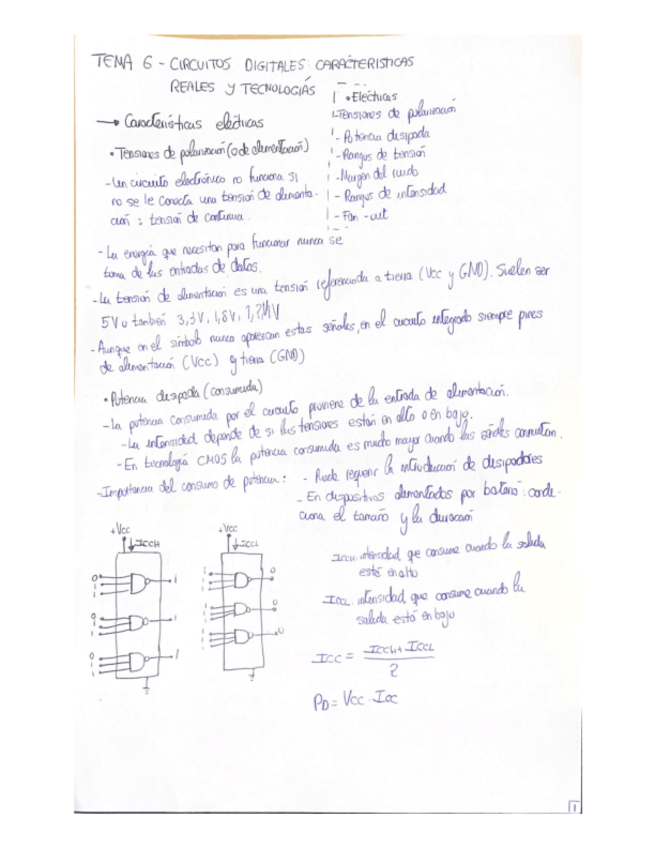 TEMA 6 - CIRCUITOS DIGITALES: CARACTERISTICAS
REALES Y TECNOLOGIÁS
→ Características eléctricas
• Tensiones de polarización (o de alimentación)
- Un circuito electrónico no funciona si
no se le conecta una tensión de alimenta-
ción : tensión de continua.
• Eléctricas
- Tensiones de polarización
- Potencia disipada
- Rangos de tensión
- Margen del ruido
- Rangos de intensidad
- Fan-out
- La energía que necesitan para funcionar nunca se
toma de las entradas de datos.
- La tensión de alimentación es una tensión referenciada a tierra (Vcc y GND). Suelen ser
5V o también 3,3V, 1,8V, 1,2V
- Aunque en el símbolo nunca aparezcan estas señales, en el circuito integrado siempre pines
de alimentación (Vcc) y tierra (GND)
• Potencia disipada (consumida)
- La potencia consumida por el circuito proviene de la entrada de alimentación.
- La intensidad depende de si las tensiones están en alto o en bajo.
- En tecnología CMOS la potencia consumida es mucho mayor cuando las señales conmutan.
- Importancia del consumo de potencia:
- Puede requerir la introducción de disipadores
- En dispositivos alimentados por batería: condi-
ciona el tamaño y la duración
+Vcc
↓ICCH
0
1
1
1
0
1
1
1
0
1
1
1
+Vcc
↓ICCL
1
1
1
0
1
1
1
0
1
1
1
0
ICCH: intensidad que consume cuando la salida
está en alto
ICCL: intensidad que consume cuando la
salida está en bajo
ICC = ICCH + ICCL
2
PD = VCC · ICC
1